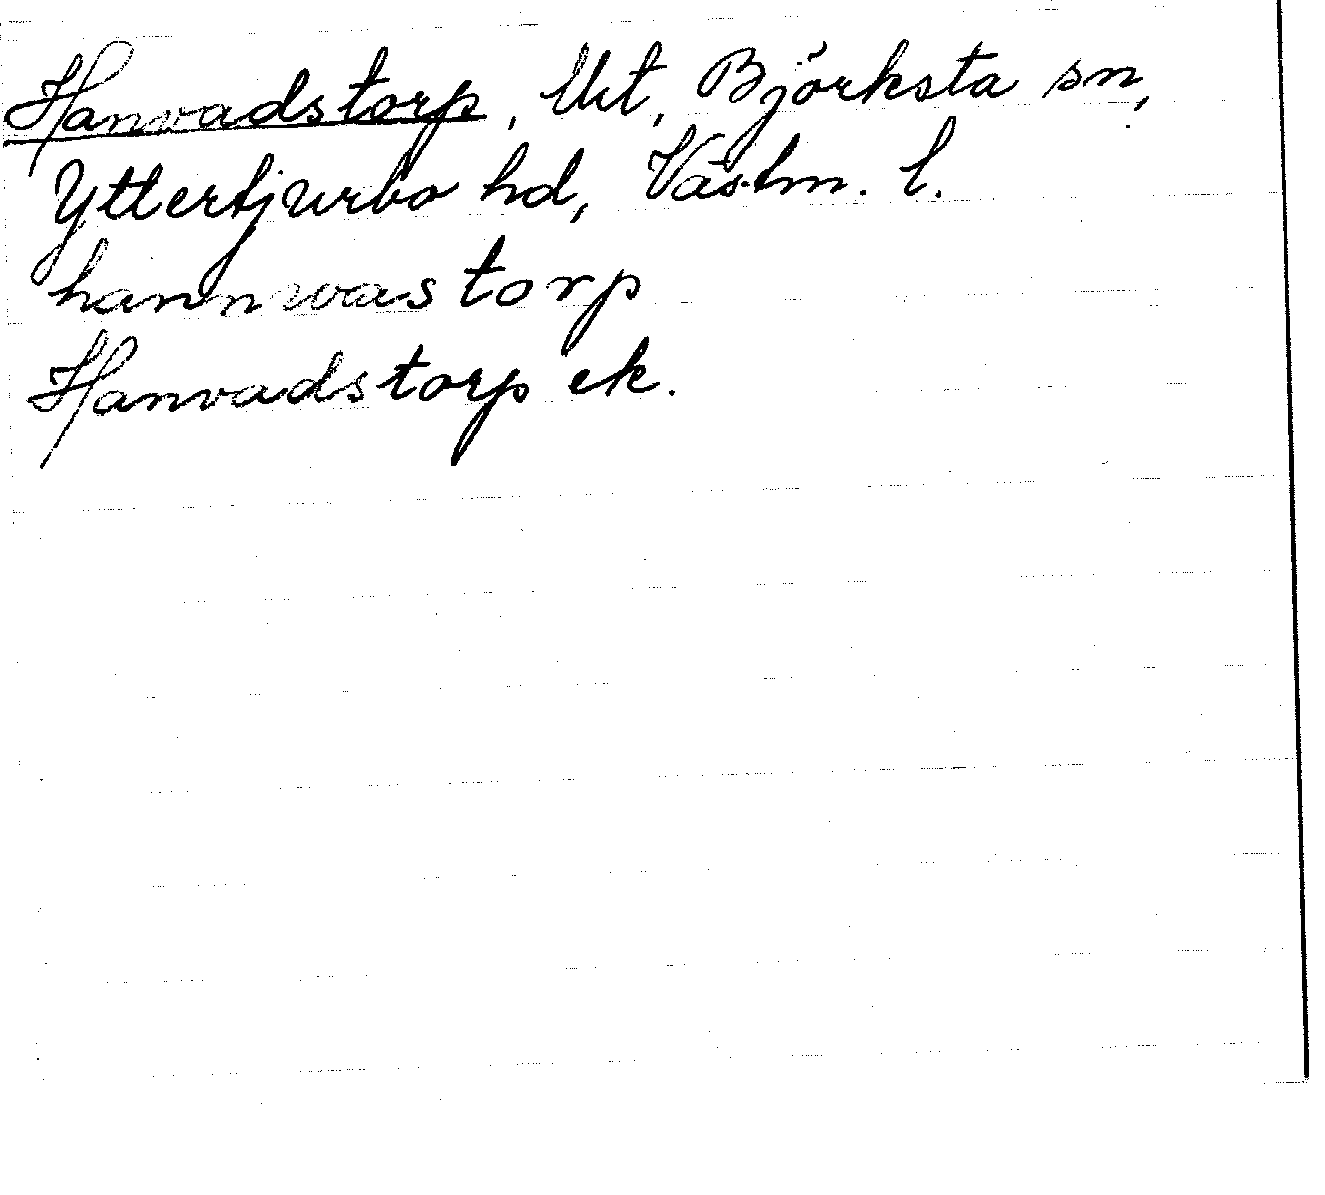 Hanvadstorp, Utt, Björksta sn,
Yttertjurbo hd, Västm. l.
hannwastorp
Hanvadstorp ek.